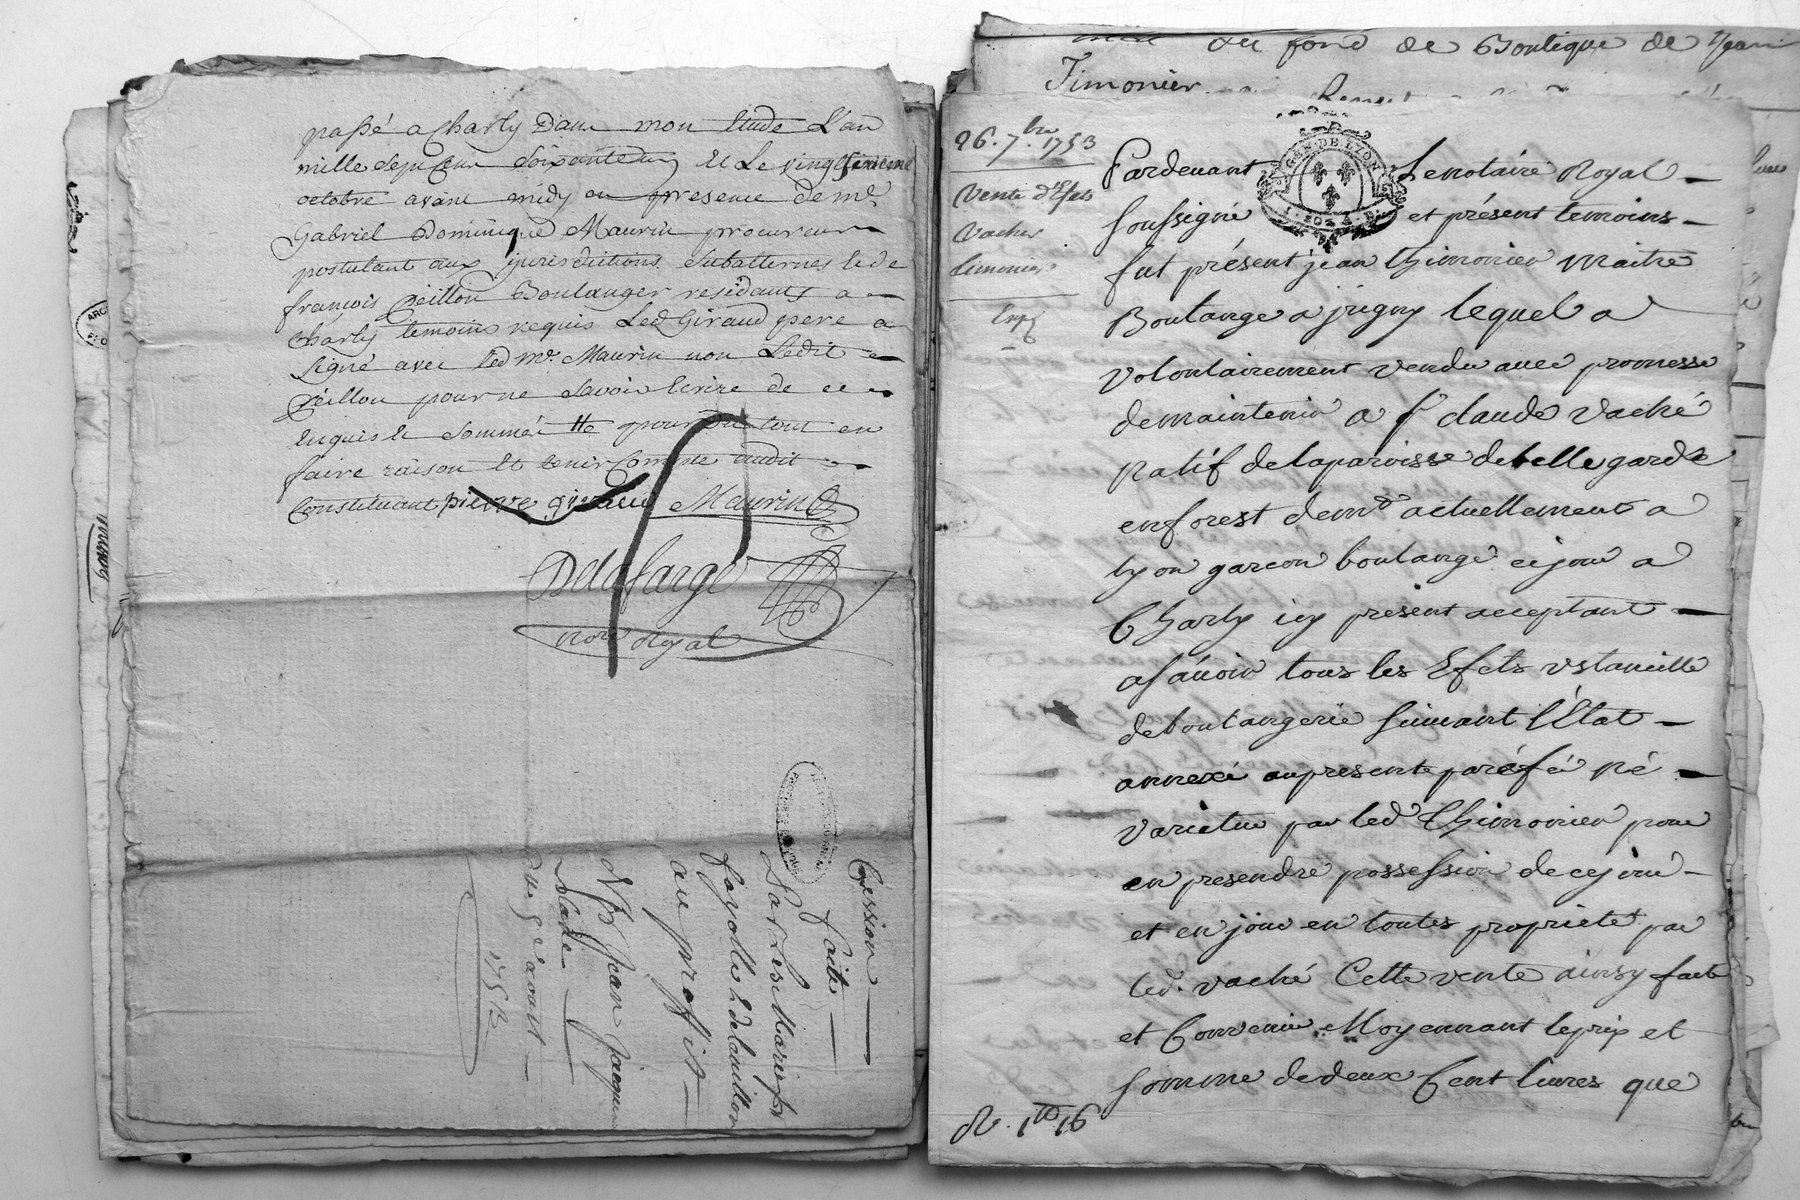 passé a Charly Dans mon Etude L'an
mille sept Cent Soixante deux Et Le vingt sixieme
octobre avant midy en presence de me
Gabriel Dominique Maurin procureur
postulant aux jurisdictions Subalternes et de
françois peillon Boulanger residants a
Charly temoins requis Led Giraud pere a
Signé avec led me. Maurin non Ledit
peillon pour ne Savoir Ecrire de ce
Enquis et Sommé
faire raison Et tenir Compte audit
Constituant pierre giraud Maurin
Delafarge
nore Royal
Cession
faite
par
au proffit
Sr Jean Jacques
du 9e aoust
1753
du fond de Boutique de Jean
Timonier
26. 7bre 1753
Vente d'Efets
Vacher
timonier
Expé
GEN. DE LYON
Pardevant Le notaire Royal
soussigné et présent temoins
fut présent jean thimonier maitre
Boulangé a jrigny lequel a
volontairement vendu avec promesse
de maintenir a sr claude vaché
natif de la paroisse de belle garde
en forest demt actuellement a
lyon garcon boulangé cejour a
Charly icy présent acceptant
asavoir tous les Efets ustancille
de boulangerie suivant l'État
annexé au present parafé né
varietur par led Thimonier pour
en prendre possession de cejour
et en jouir en toutes proprieté par
led. vaché Cette vente ainsy faite
et Convenue Moyennant le prix et
somme de deux Cent livres que
R. 1tt 16